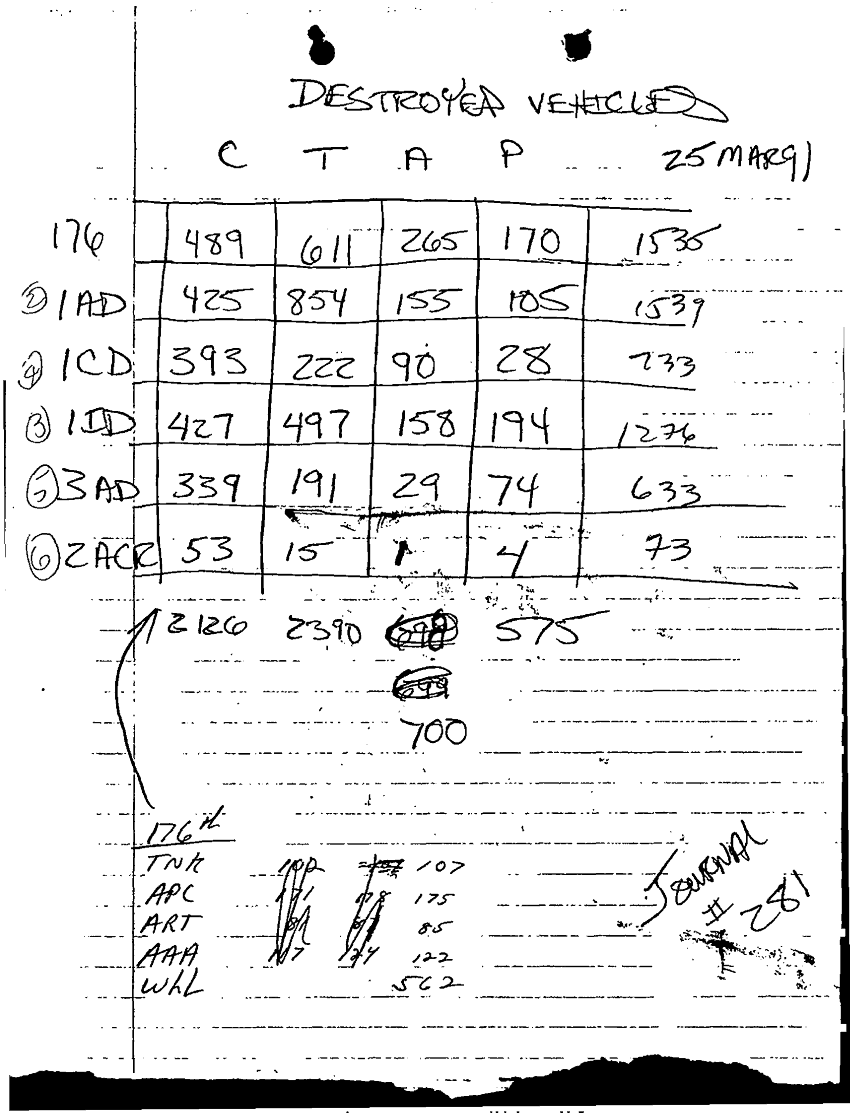 DESTROYED VEHICLES
C T A P 25 MAR 91
176 489 611 265 170 1535
② 1AD 425 854 155 105 1539
④ 1CD 393 222 90 28 733
③ 1ID 427 497 158 194 1276
⑤ 3AD 339 191 29 74 633
⑥ 2ACR 53 15 1 4 73
2126 2390 698 575
699
700
176th
TNK 102 107
APC 171 178 175
ART 81 87 85
AAA 117 124 122
WHL 562
JOURNAL
# 281